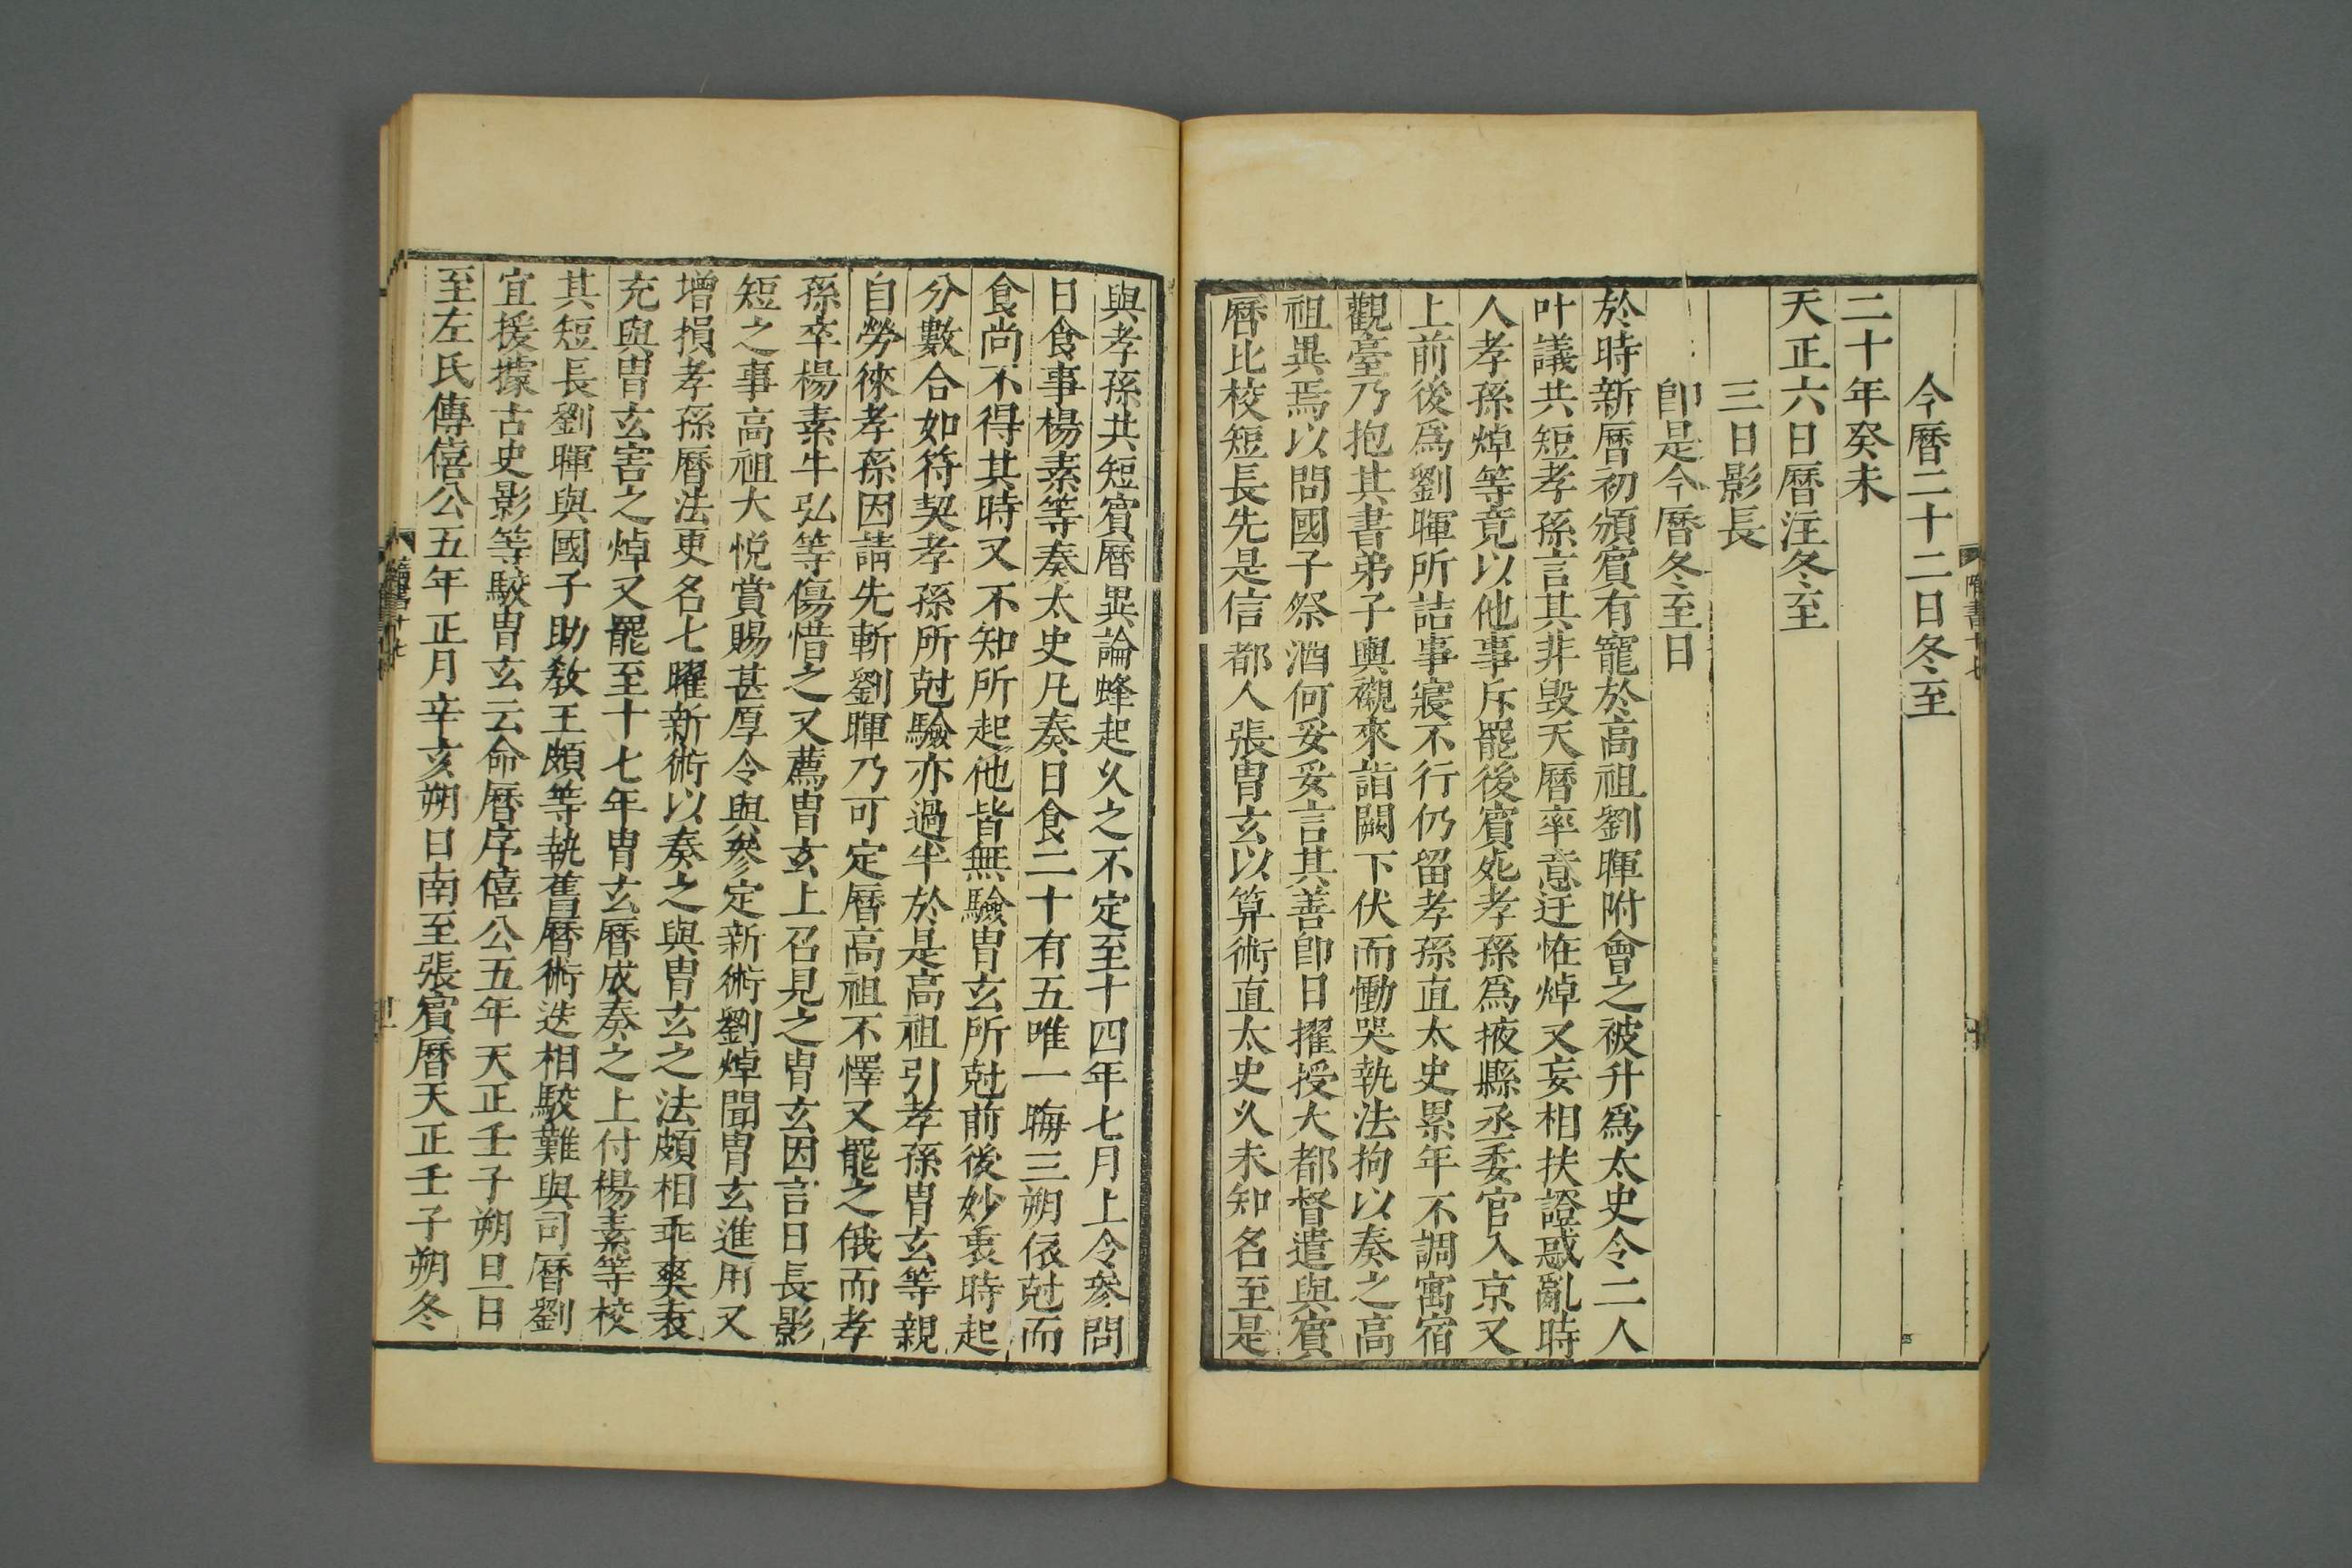 今曆二十二日冬至
二十年癸未
天正六日曆注冬至
三日影長
即是今曆冬至日
於時新曆初頒賓有寵於高祖劉暉附會之被升爲太史令二人
叶議共短孝孫言其非毀天曆率意迂怪焯又妄相扶證惑亂時
人孝孫焯等竟以他事斥罷後賓死孝孫爲掖縣丞委官入京又
上前後爲劉暉所詰事寢不行仍留孝孫直太史累年不調寓宿
觀臺乃抱其書弟子輿櫬來詣闕下伏而慟哭執法拘以奏之高
祖異焉以問國子祭酒何妥妥言其善即日擢授大都督遣與賓
曆比校短長先是信都人張胄玄以算術直太史久未知名至是
與孝孫共短賓曆異論蜂起久之不定至十四年七月上令參問
日食事楊素等奏太史凡奏日食二十有五唯一晦三朔依尅而
食尚不得其時又不知所起他皆無驗胄玄所尅前後妙衷時起
分數合如符契孝孫所尅驗亦過半於是高祖引孝孫胄玄等親
自勞徠孝孫因請先斬劉暉乃可定曆高祖不懌又罷之俄而孝
孫卒楊素牛弘等傷惜之又薦胄玄上召見之胄玄因言日長影
短之事高祖大悅賞賜甚厚令與參定新術劉焯聞胄玄進用又
增損孝孫曆法更名七曜新術以奏之與胄玄之法頗相乖爽袁
充與胄玄害之焯又罷至十七年胄玄曆成奏之上付楊素等校
其短長劉暉與國子助敎王頗等執舊曆術迭相駮難與司曆劉
宜援據古史影等駮胄玄云命曆序僖公五年天正壬子朔旦日
至左氏傳僖公五年正月辛亥朔日南至張賓曆天正壬子朔冬